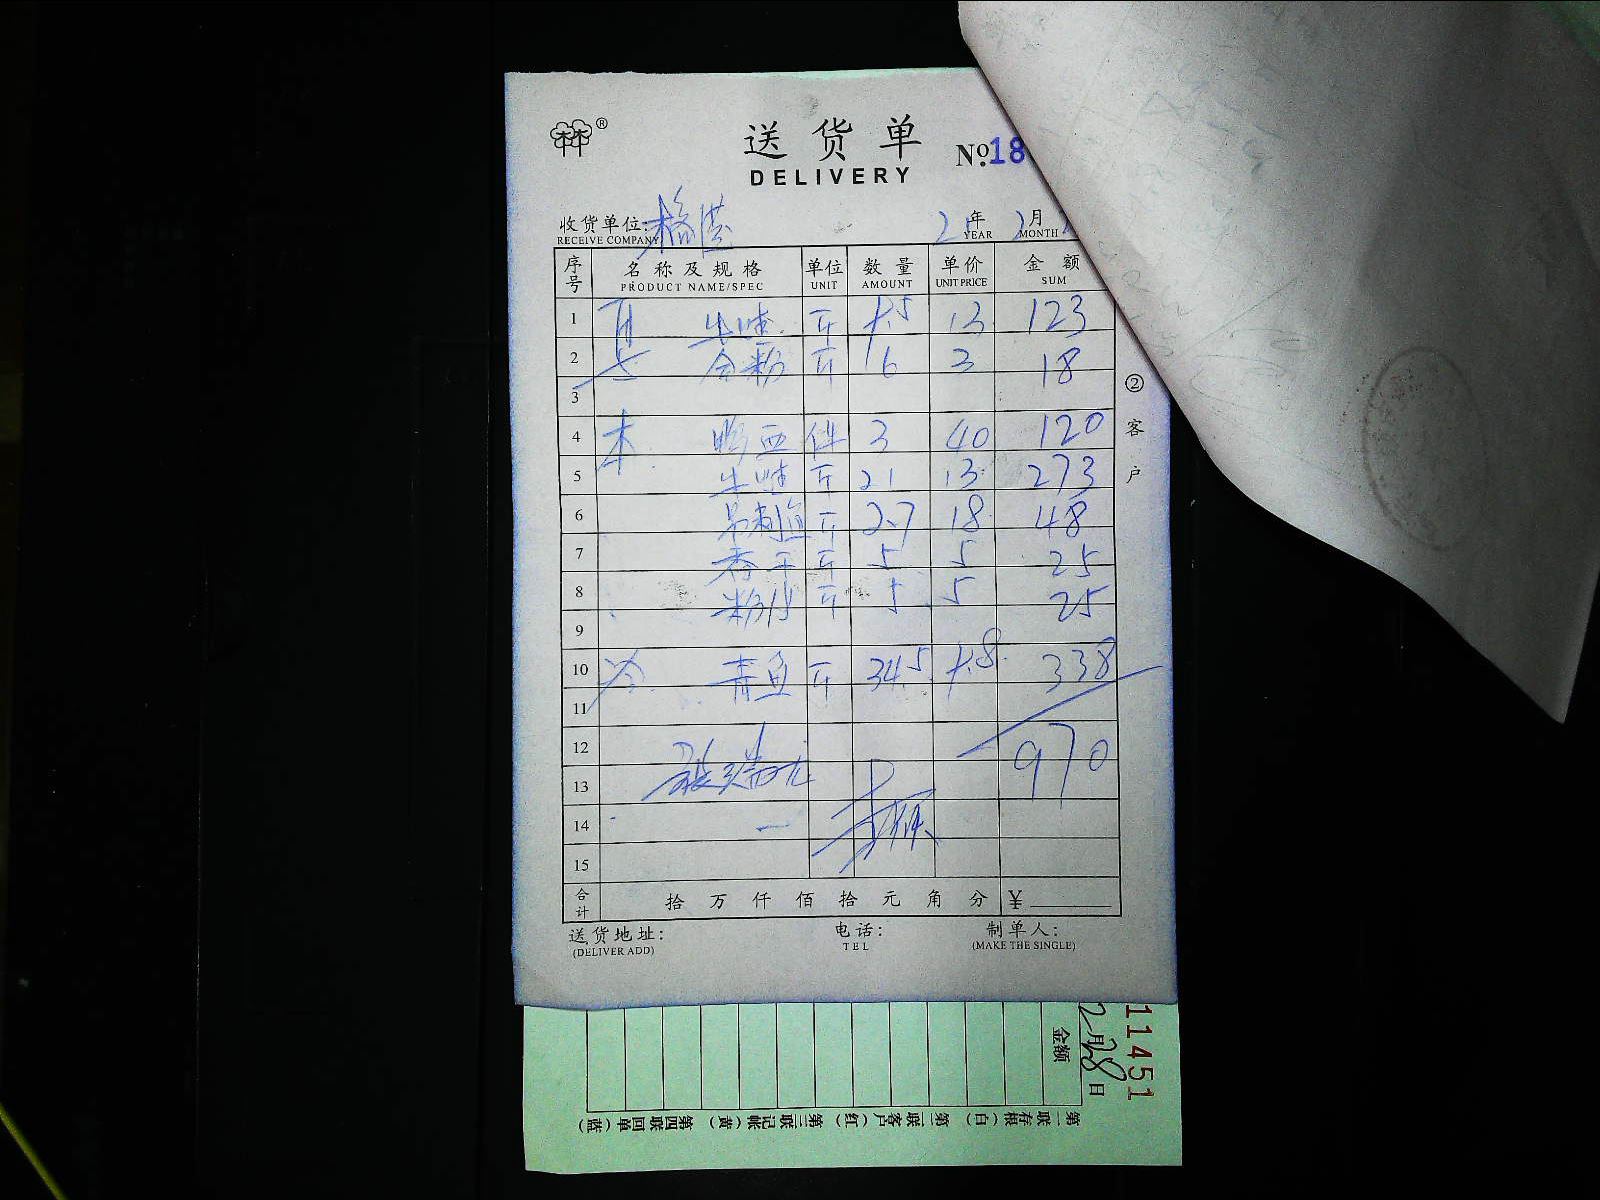 林林®
送货单
№ 18
DELIVERY
收货单位:
RECEIVE COMPANY
21年 2月
YEAR MONTH
序号 名称及规格 单位 数量 单价 金额
PRODUCT NAME/SPEC UNIT AMOUNT UNIT PRICE SUM
1 牛蛙 斤 9.5 13 123
2 会粉 斤 6 3 18
3
4 本 件 3 40 120
5 牛蛙 斤 21 13 273
6 斤 2.7 18 48
7 香干 斤 5 5 25
8 粉 斤 5 5 25
9
10 冷 青鱼 斤 34.5 9.8 338
11
12 970
13
14
15
合计 拾 万 仟 佰 拾 元 角 分 ¥
② 客户
送货地址: 电话: 制单人:
(DELIVER ADD) TEL (MAKE THE SINGLE)
11451
2月28日
金额
第一联存根(白) 第二联客户(红) 第三联记帐(黄) 第四联回单(蓝)